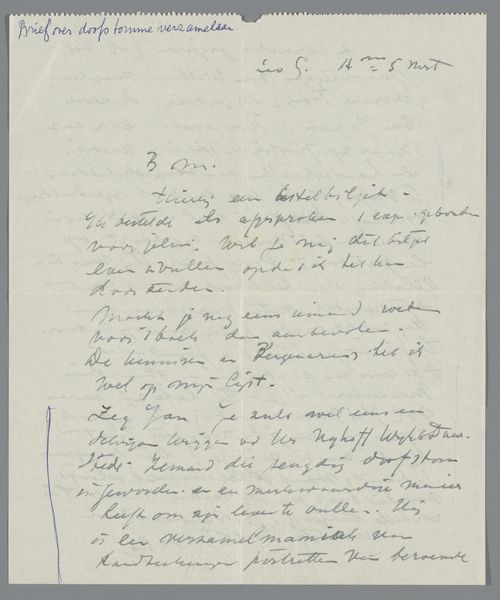 Brief over doofstomme verzamelaar
5 Mrt
B M.
Hierbij een bestelbiljet -
Gij bestelde als afgesproken 1 exp. gebonden
voor Wil je mij dit biljet
even invullen opdat ik het kan
doorzenden.
Mocht je nog eens iemand weten
voor 't boek dan aanbevolen -
De kennissen en heb ik
wel op mijn lijst -
Zeg Jan, je zult wel eens een
krijgen vd Hr Nyhoff Wijk b Duur-
stede. Iemand die jeugdig doofstom
is geworden en een merkwaardige manier
heeft om zijn leven te vullen. Hij
is een verzamelmaniak van
Handteekeningen portretten van beroemde